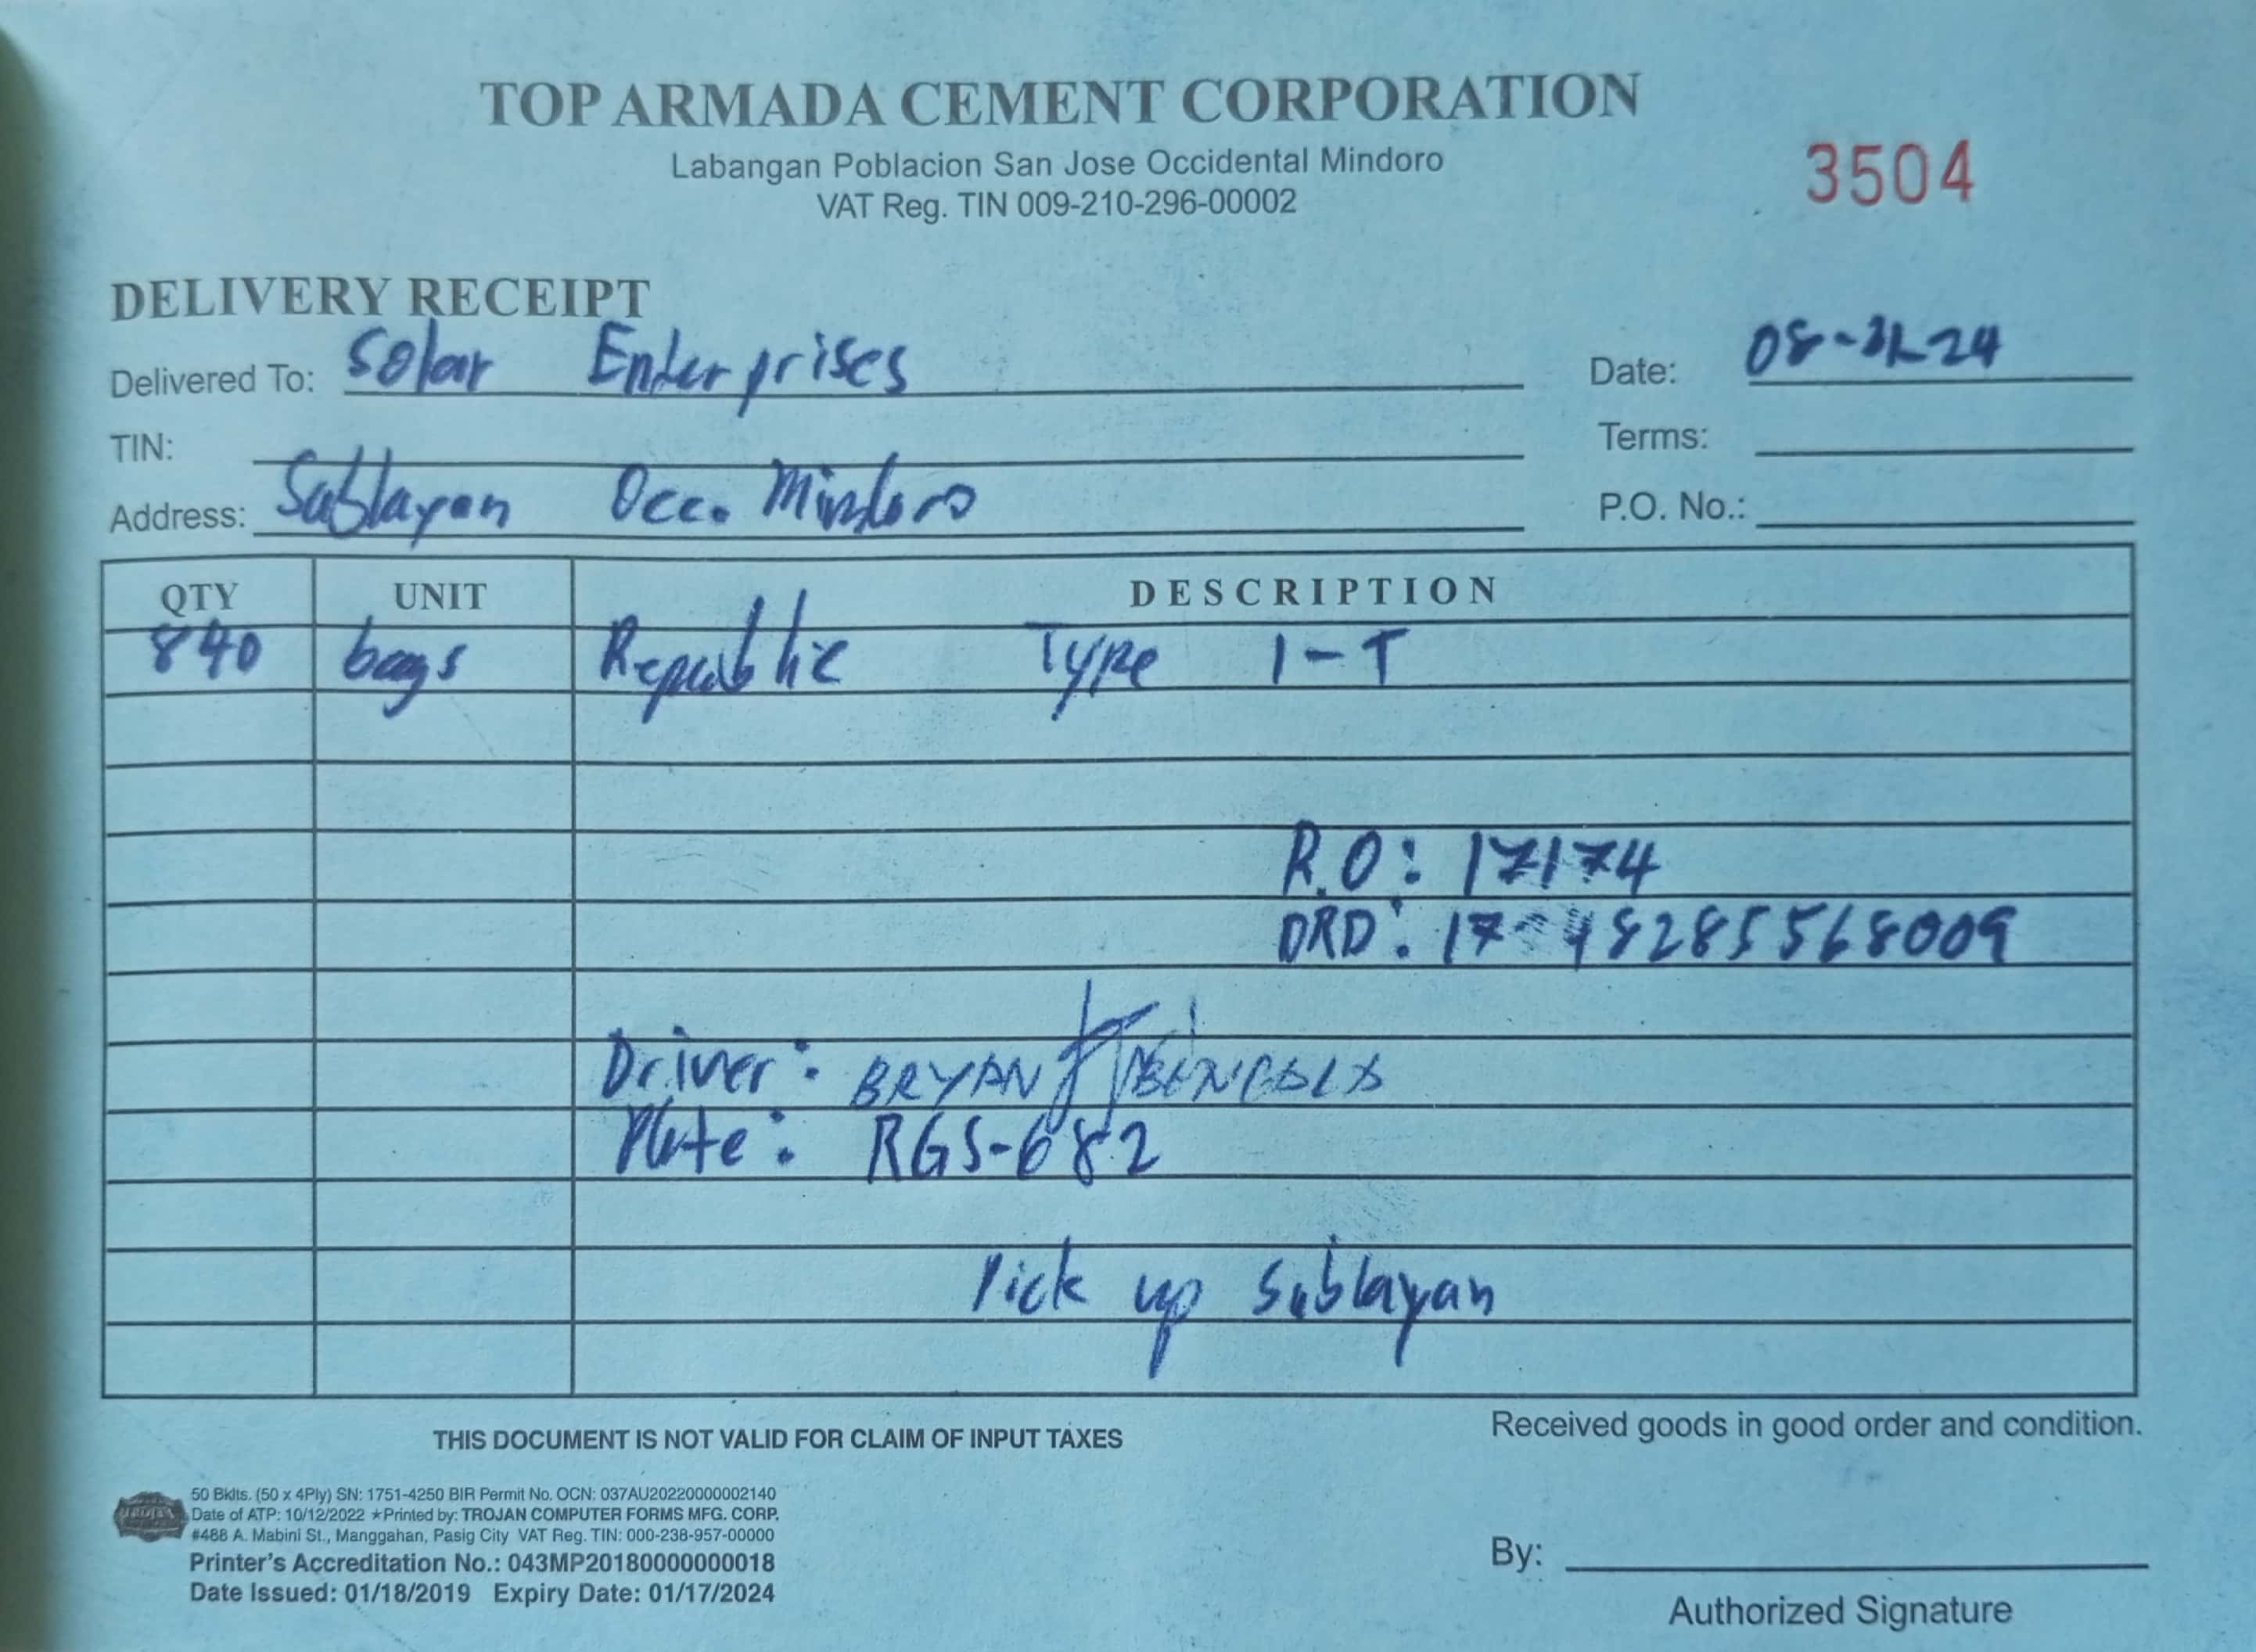 TOP ARMADA CEMENT CORPORATION
Labangan Poblacion San Jose Occidental Mindoro
VAT Reg. TIN 009-210-296-00002
3504
DELIVERY RECEIPT
Delivered To: Solar Enterprises
Date: 08-31-24
TIN:
Terms:
Address: Sablayan Occ. Mindoro
P.O. No.:
QTY UNIT DESCRIPTION
840 bags Republic Type 1-T
R.O: 17174
DRD: 17
Driver: BRYAN
Plate: RGS-682
Pick up Sablayan
THIS DOCUMENT IS NOT VALID FOR CLAIM OF INPUT TAXES
Received goods in good order and condition.
50 Bklts. (50 x 4Ply) SN: 1751-4250 BIR Permit No. OCN: 037AU20220000002140
Date of ATP: 10/12/2022 ★Printed by: TROJAN COMPUTER FORMS MFG. CORP.
#488 A. Mabini St., Manggahan, Pasig City VAT Reg. TIN: 000-238-957-00000
Printer's Accreditation No.: 043MP20180000000018
Date Issued: 01/18/2019 Expiry Date: 01/17/2024
By:
Authorized Signature